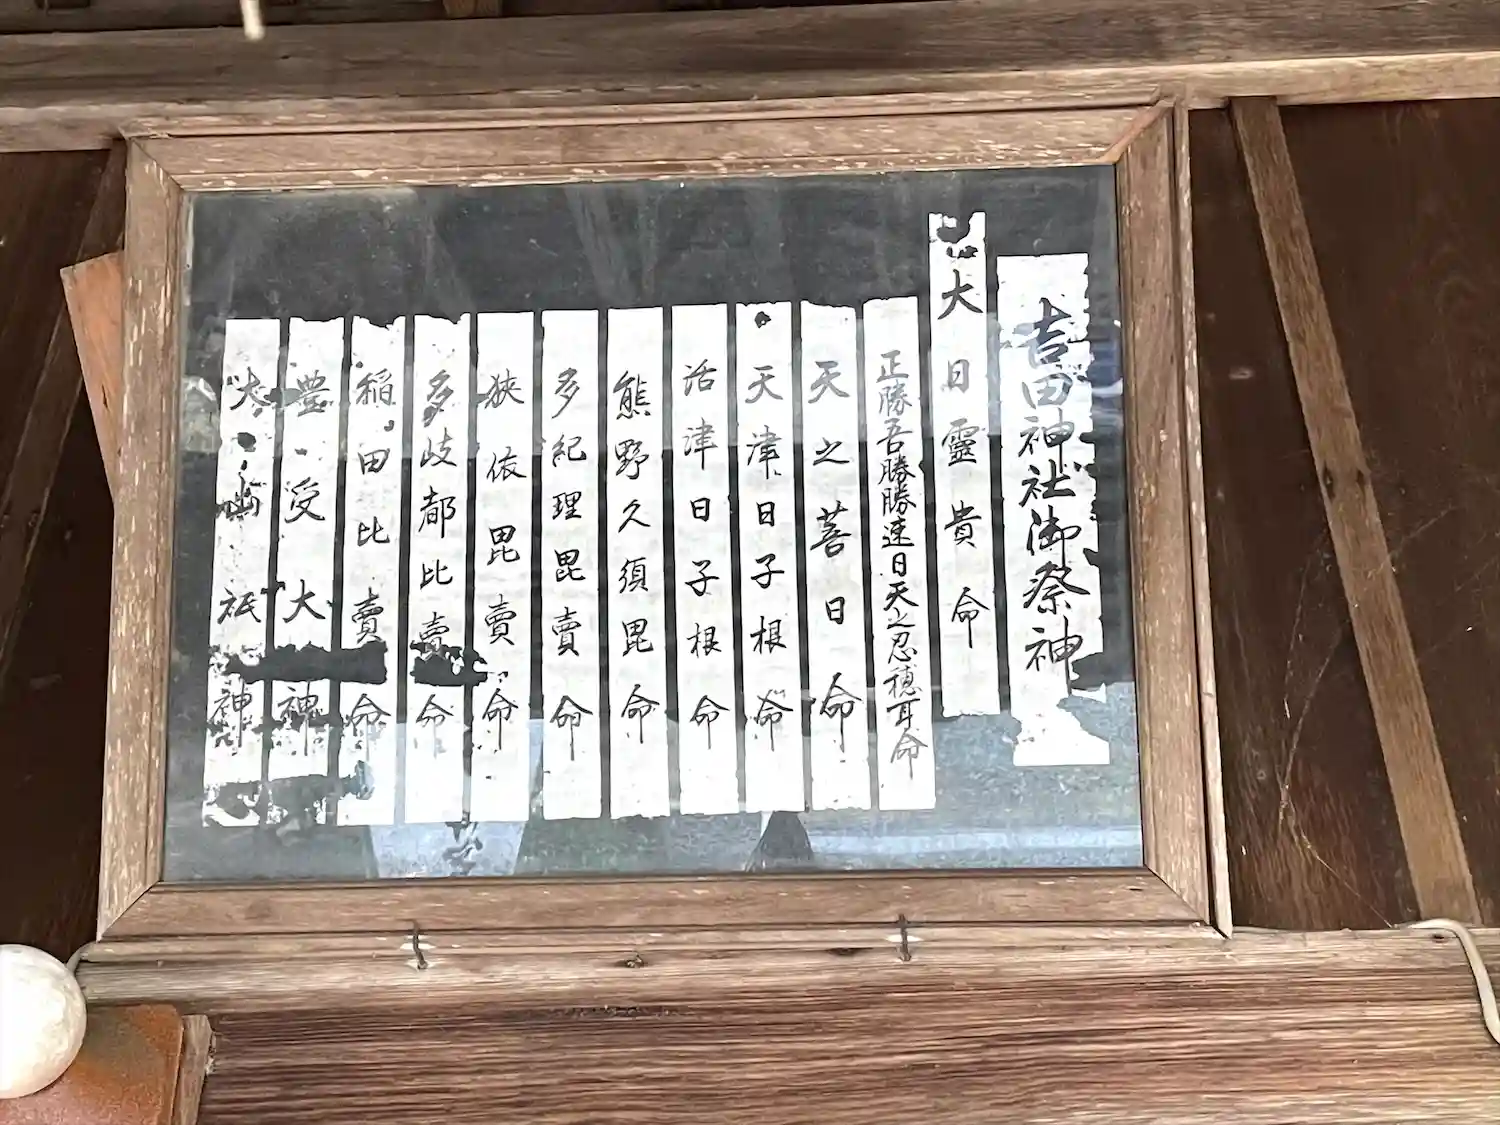 吉田神社御祭神
大日靈貴命
正勝吾勝勝速日天之忍穂耳命
天之菩日命
天津日子根命
活津日子根命
熊野久須毘命
多紀理毘賣命
狭依毘賣命
多岐都比賣命
稲田比賣命
豊受大神
大山祇神